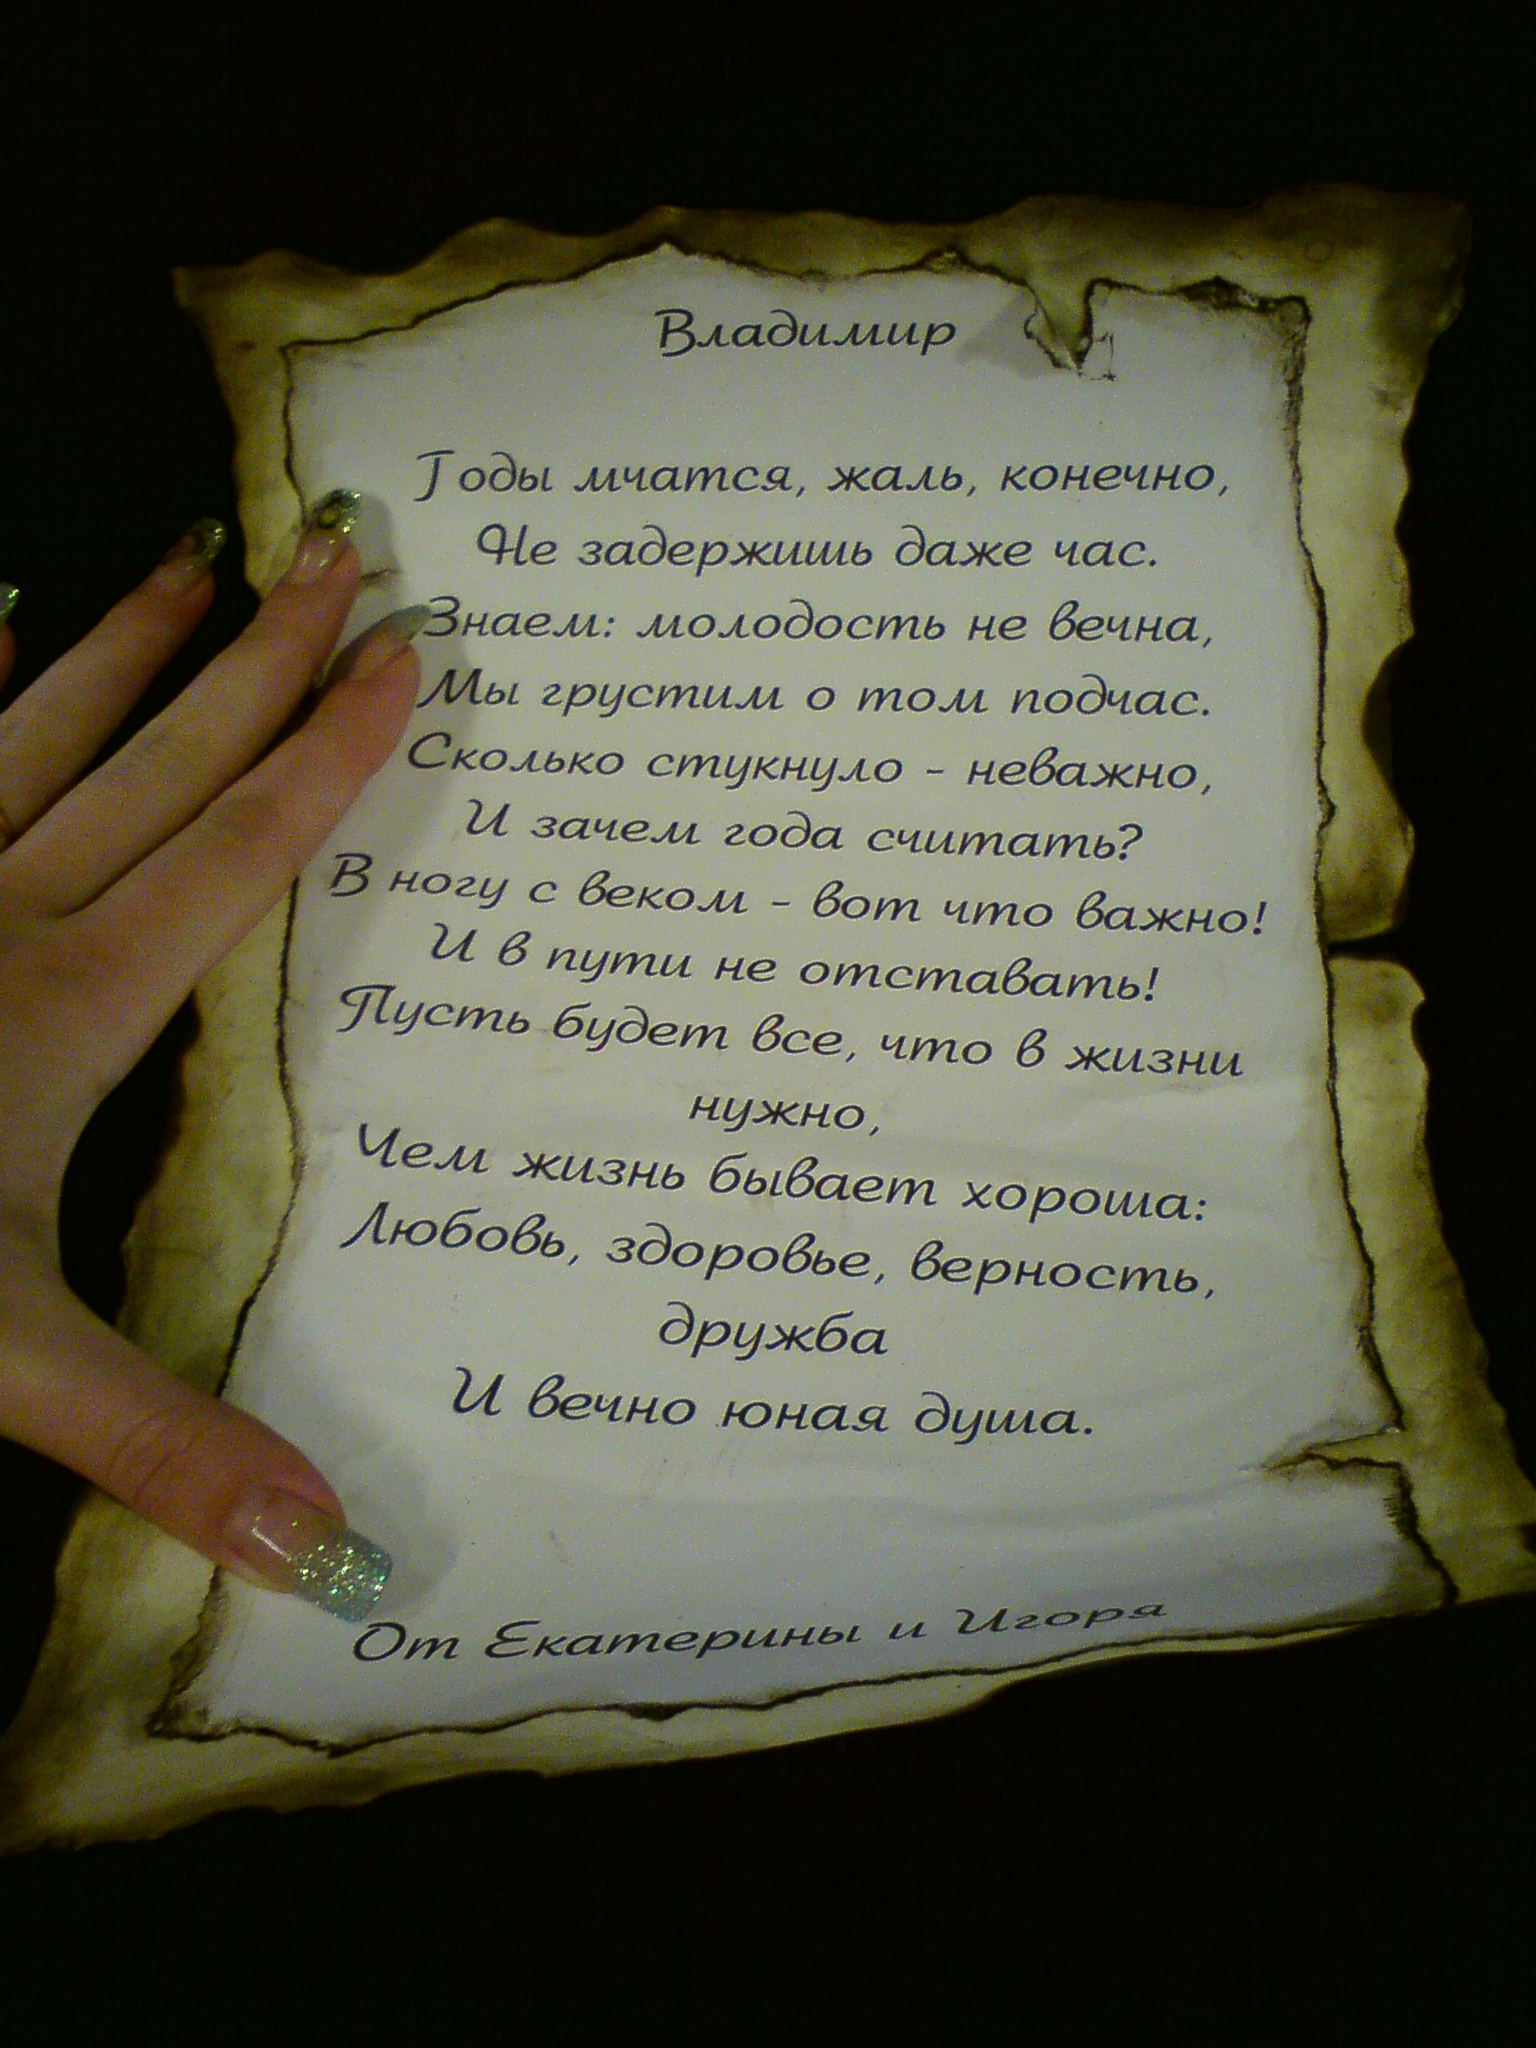 Владимир
Годы мчатся, жаль, конечно,
Не задержишь даже час.
Знаем: молодость не вечна,
Мы грустим о том подчас.
Сколько стукнуло - неважно,
И зачем года считать?
В ногу с веком - вот что важно!
И в пути не отставать!
Пусть будет все, что в жизни
нужно,
Чем жизнь бывает хороша:
Любовь, здоровье, верность,
дружба
И вечно юная душа.
От Екатерины и Игоря